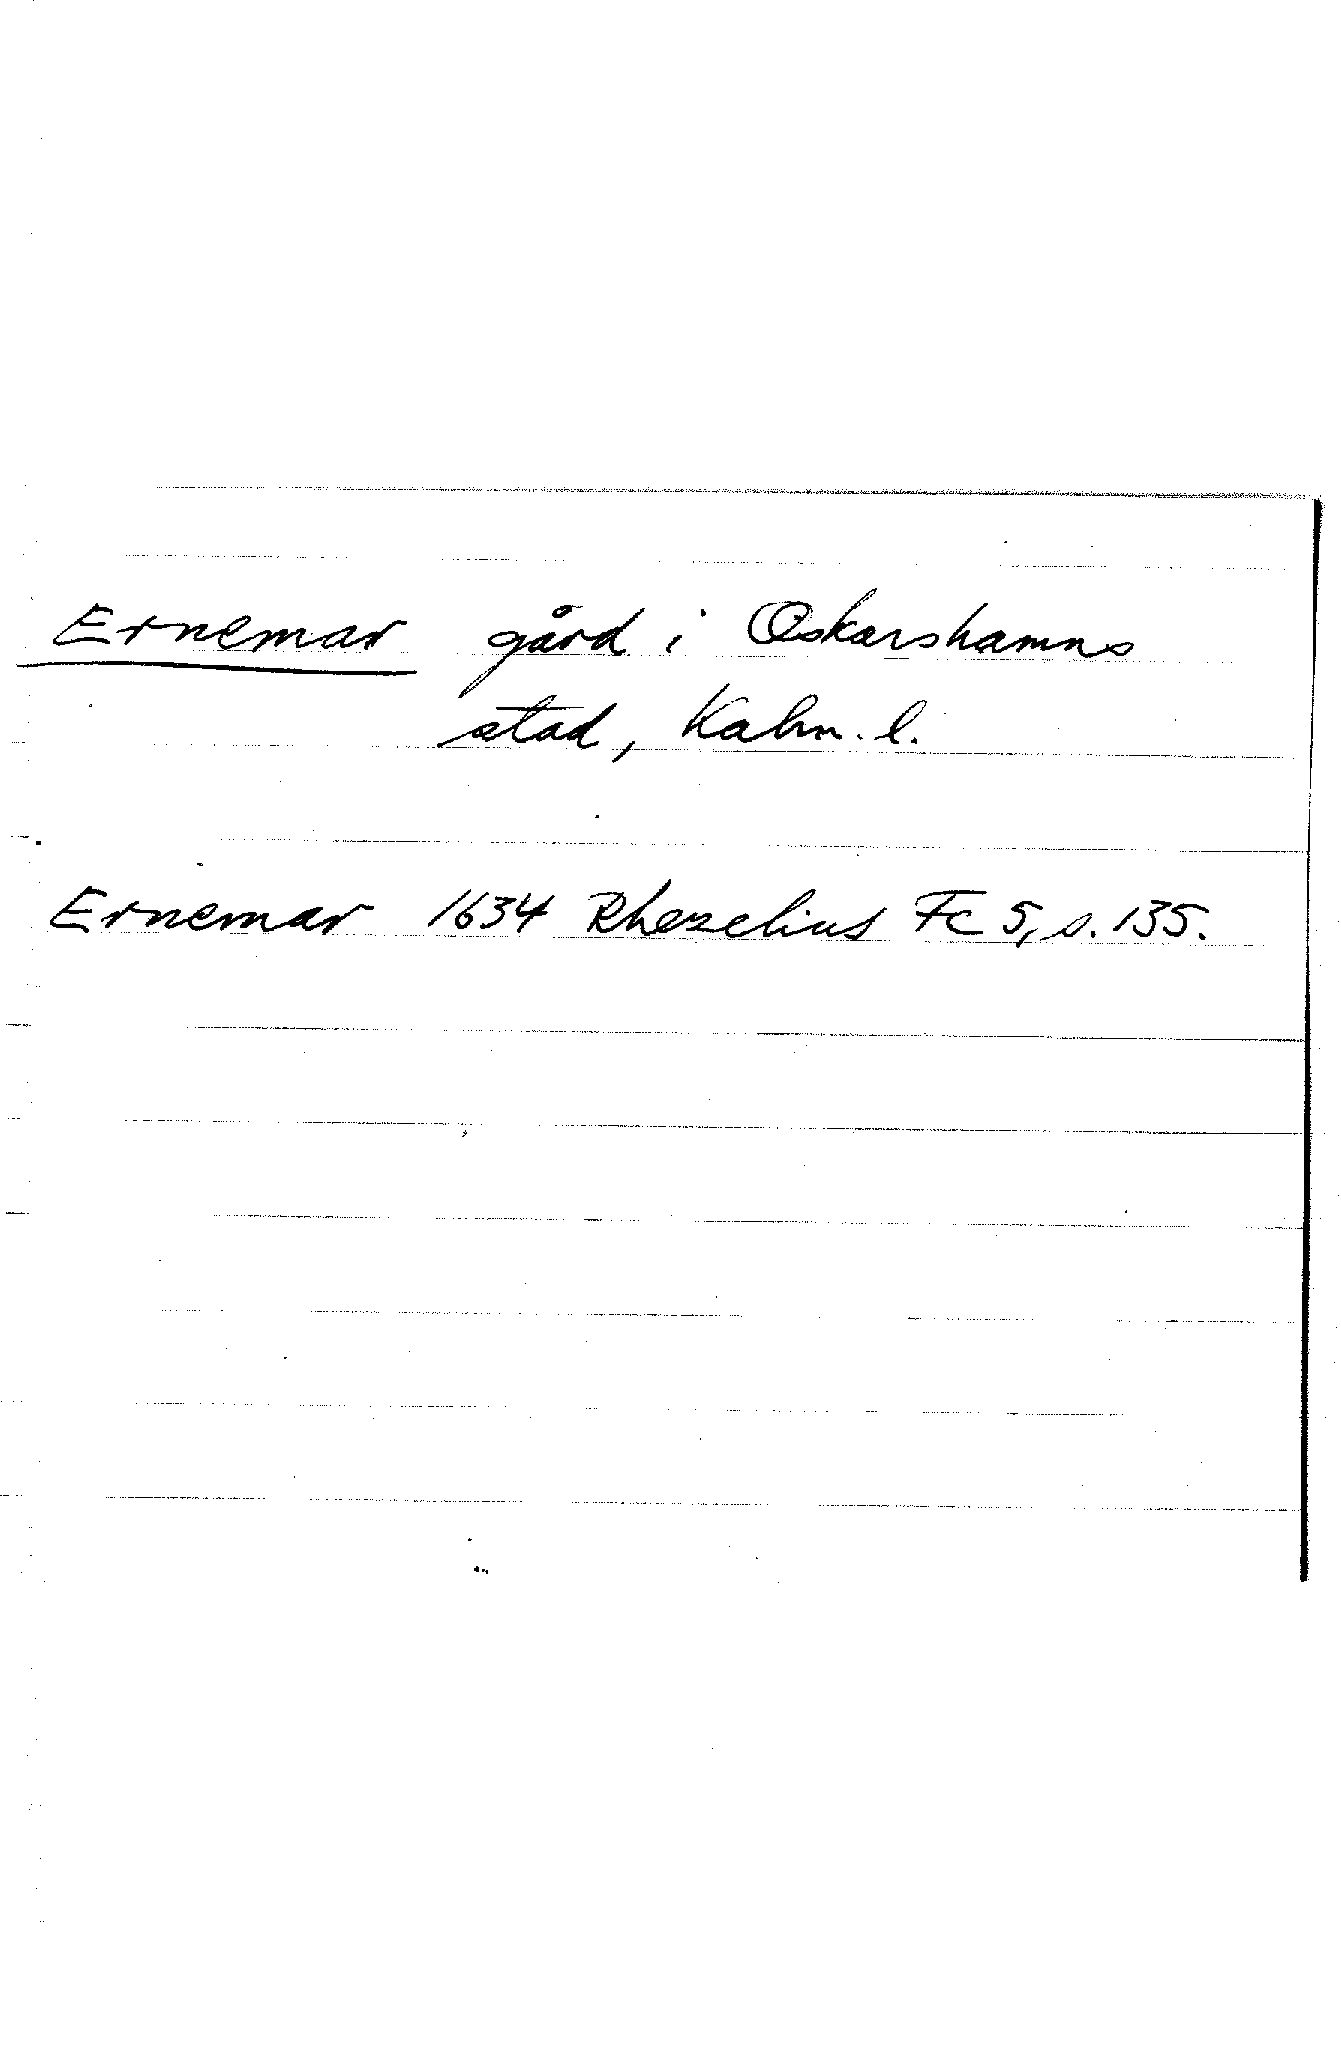 Ernemar gård i Oskarshamns
stad, Kalm. l.
Ernemar 1634 Rhezelius Fc 5, s. 135.